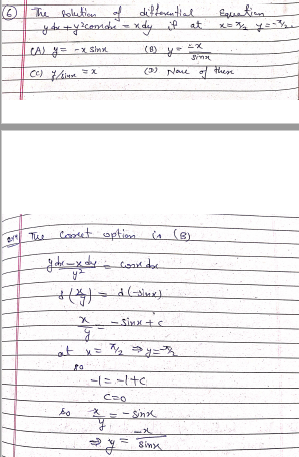 (6) The solution of differential Equation
ydx + y²cosxdx = xdy if at x = π/2 y = -π/2
(A) y = -x sinx (B) y = -x/sinx
(C) y/sinx = x (D) None of these
Ans The correct option is (B)
ydx - xdy / y² = cosx dx
d(x/y) = d(-sinx)
x/y = -sinx + c
at x = π/2 ⇒ y = -π/2
so
-1 = -1 + c
c = 0
so x/y = -sinx
⇒ y = -x/sinx